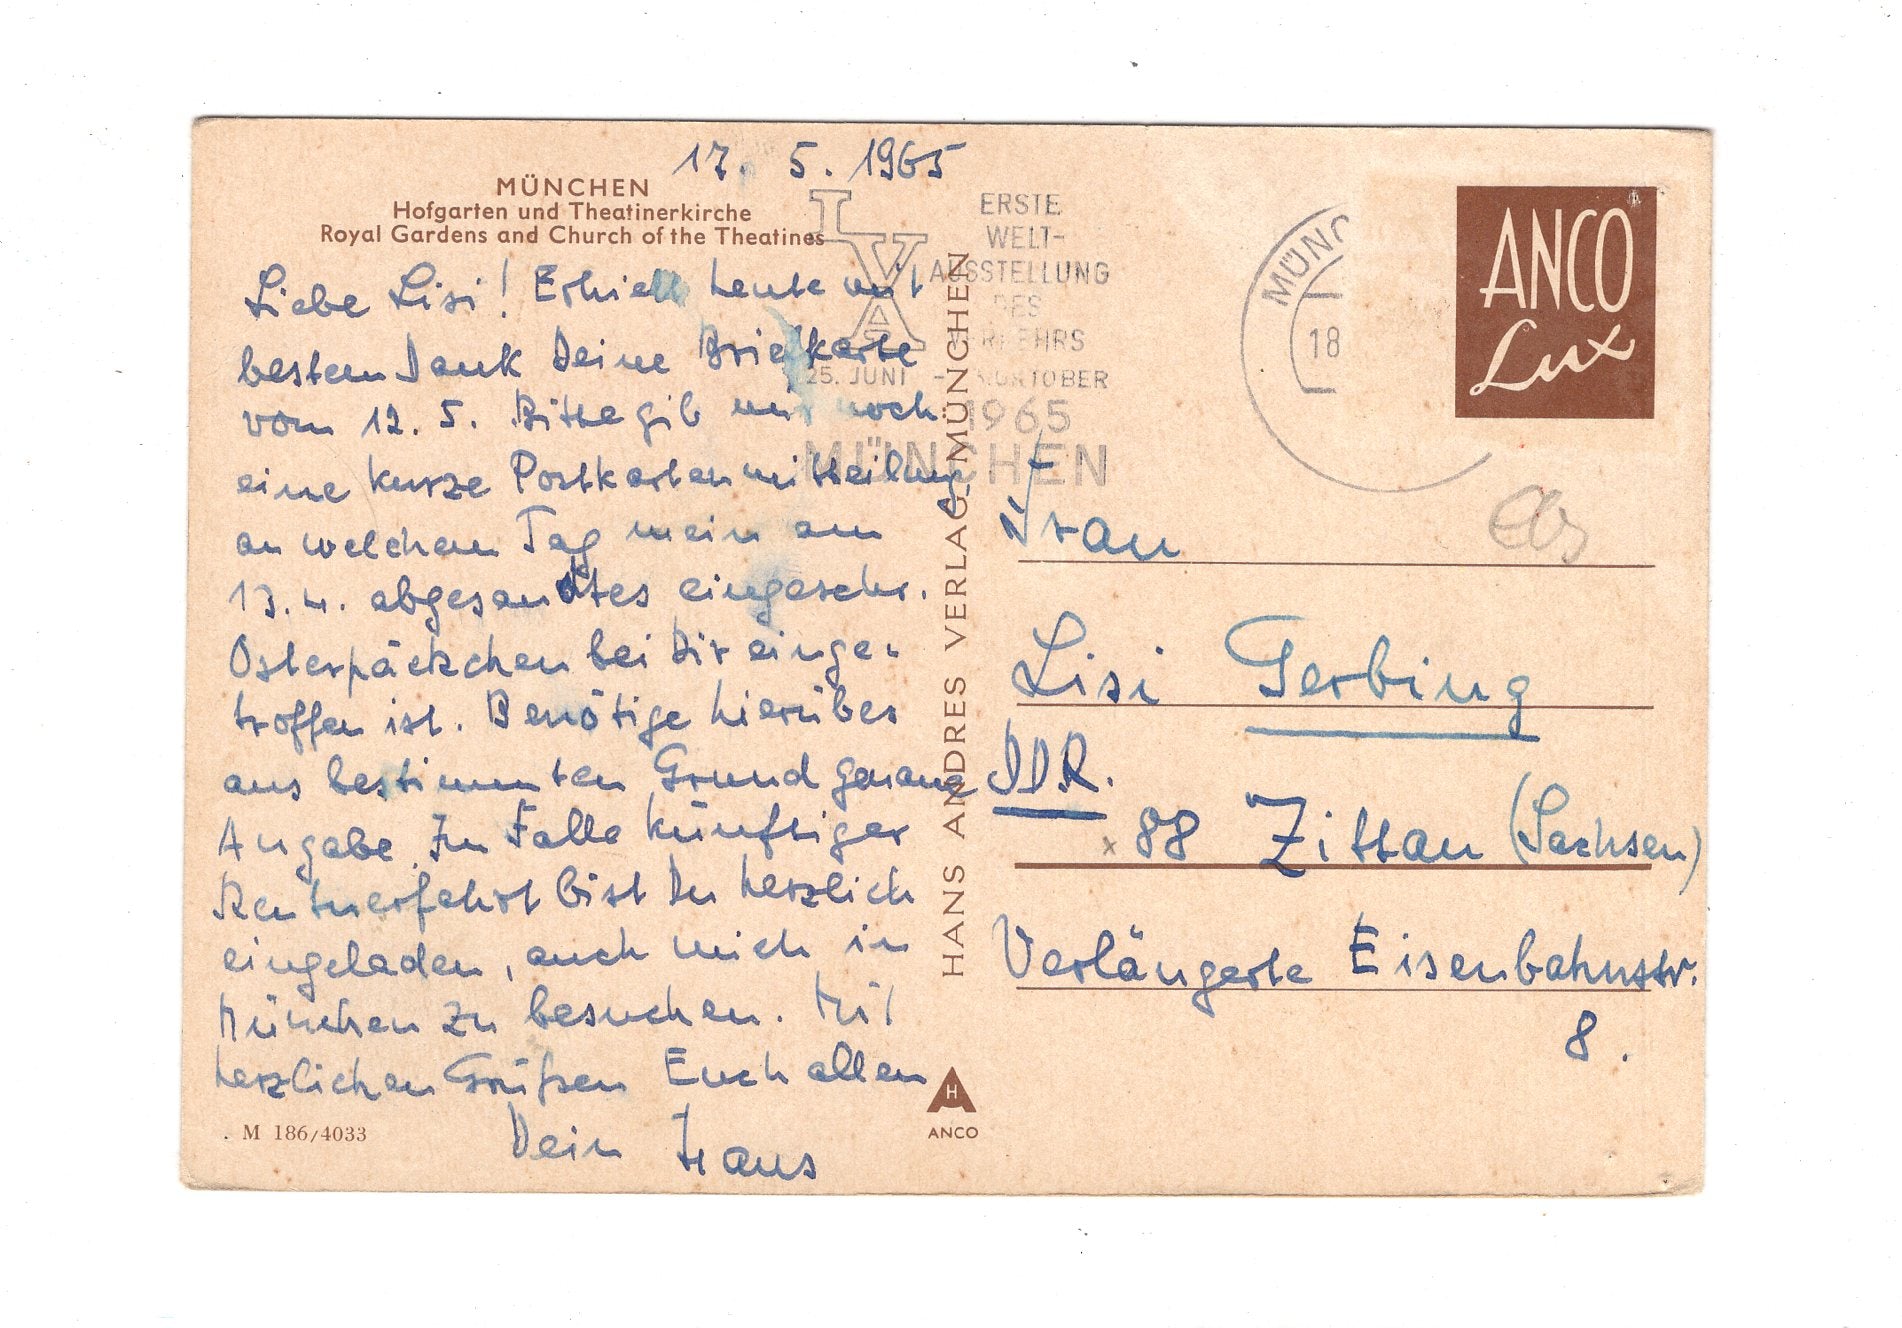 17. 5. 1965
MÜNCHEN
Hofgarten und Theatinerkirche
Royal Gardens and Church of the Theatines
Liebe Lisi! Erhielt heute mit
bestem Dank Deine Briefkarte
vom 12. 5. Bitte gib mir noch
eine kurze Postkartenmitteilung
an welchem Tag mein am
13. 4. abgesandtes eingeschr.
Osterpäckchen bei Dir einge-
troffen ist. Benötige hierüber
aus bestimmten Grund genaue
Angabe. Im Falle künftiger
Rentnerfahrt bist Du herzlich
eingeladen, auch mich in
München zu besuchen. Mit
herzlichen Grüßen Euch allen
Dein Hans
. M 186/4033
HANS ANDRES VERLAG MÜNCHEN
H
ANCO
IVA
ERSTE
WELT-
AUSSTELLUNG
DES
VERKEHRS
25. JUNI - OKTOBER
1965
MÜNCHEN
MÜNC
18
ANCO
Lux
Frau
Lisi Gerbing
DDR.
x 88 Zittau (Sachsen)
Verlängerte Eisenbahnstr.
8.